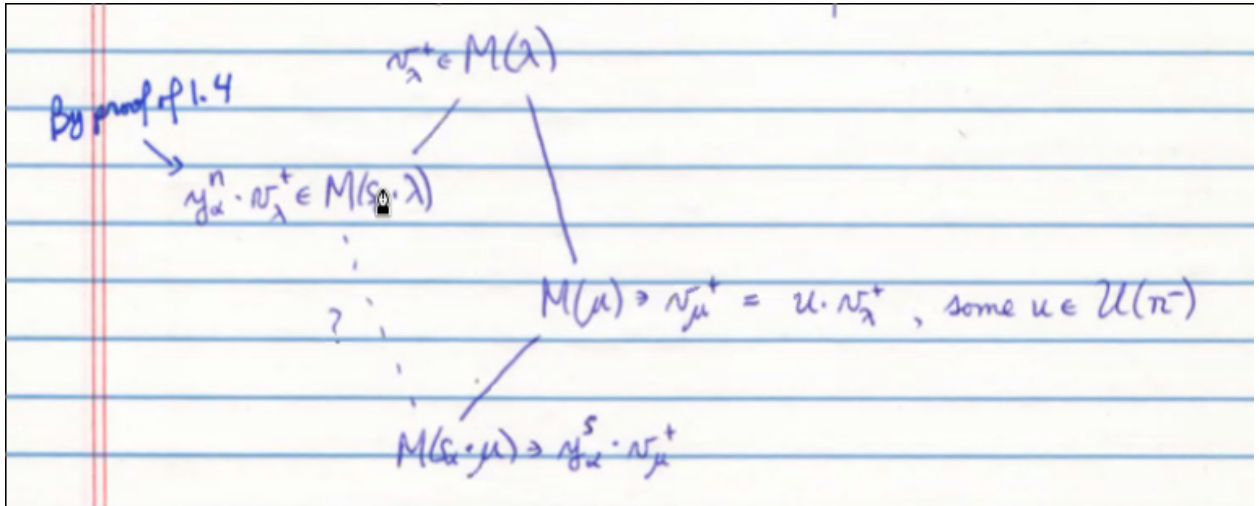 v_λ^+ ∈ M(λ)
By proof of 1.4
y_α^n · v_λ^+ ∈ M(s · λ)
M(μ) ∋ v_μ^+ = u · v_λ^+ , some u ∈ U(n^-)
?
M(s_α · μ) ∋ y_α^s · v_μ^+